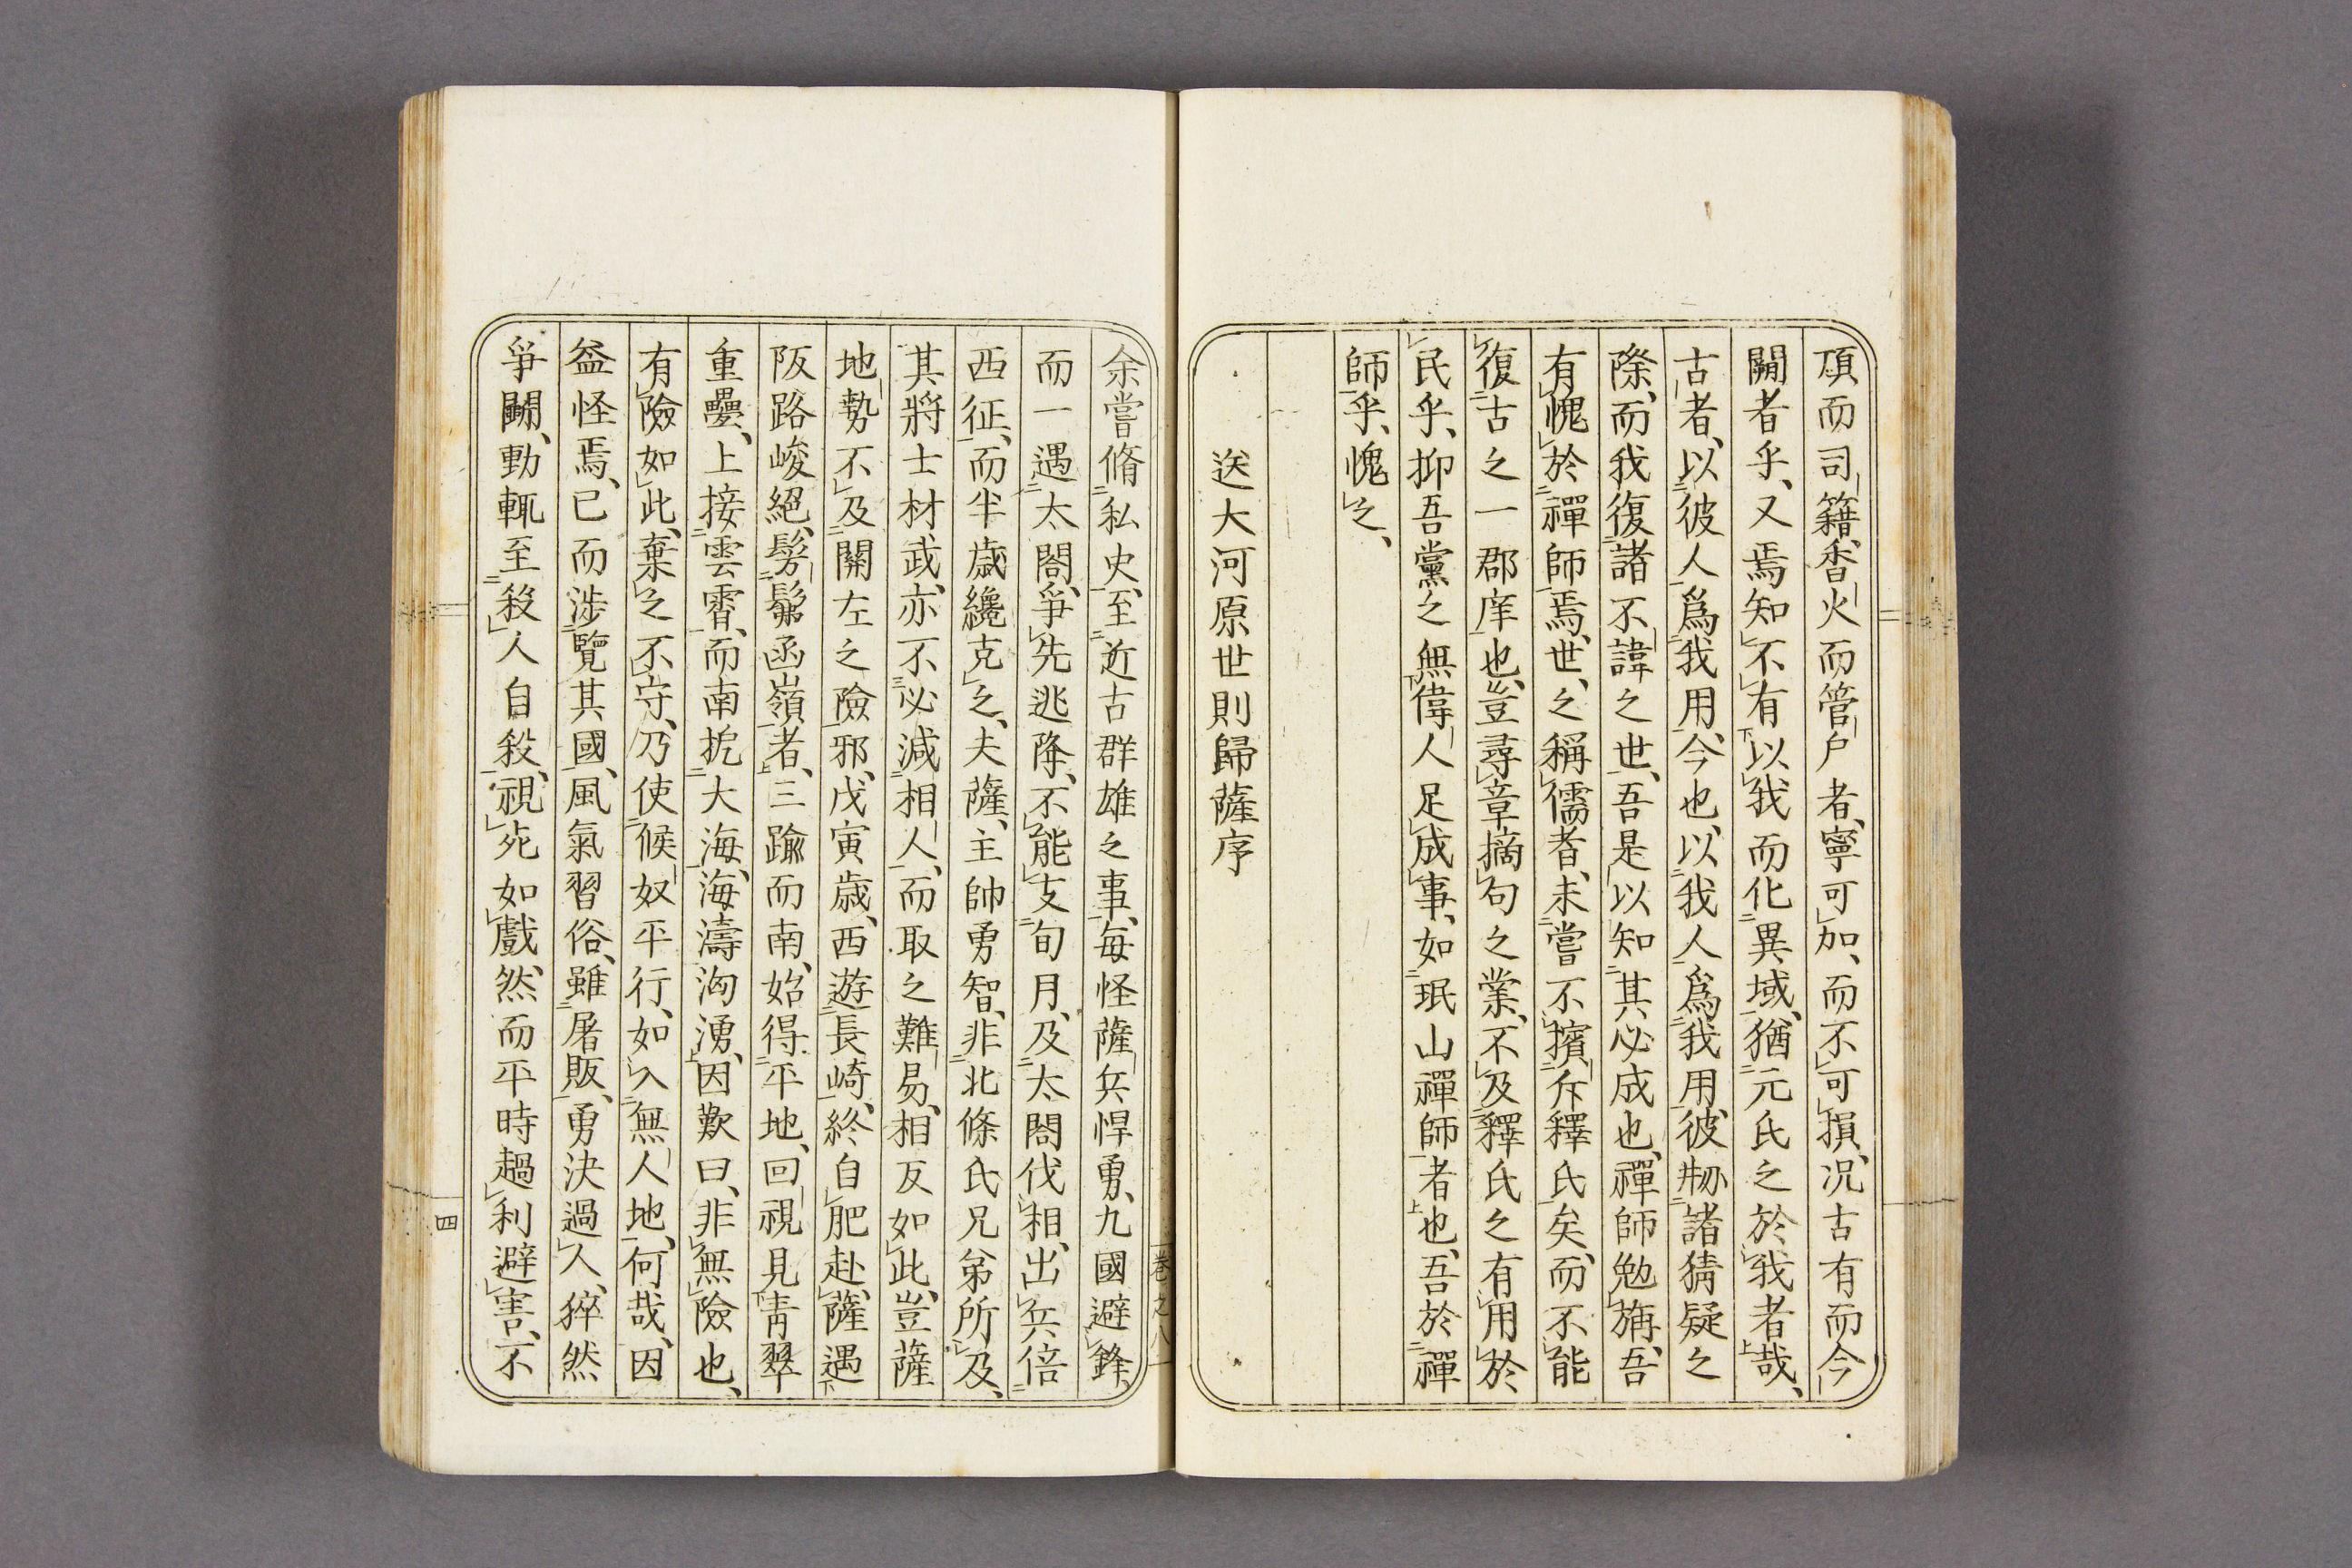 頂而司籍、香火而管户者、寧可加、而不可損、况古有而今
闕者乎、又焉知不有以我而化異域、猶元氏之於我者哉、
古者、以彼人爲我用、今也、以我人爲我用、彼刱諸猜疑之
際、而我復諸不諱之世、吾是以知其必成也、禪師勉旃、吾
有愧於禪師焉、世之稱儒者、未嘗不擯斥釋氏矣、而不能
復古之一郡庠也、豈尋章摘句之業、不及釋氏之有用於
民乎、抑吾黨之無偉人足成事、如珉山禪師者也、吾於禪
師乎、愧之、
送大河原世則歸薩序
余嘗脩私史、至近古群雄之事、每怪薩兵悍勇、九國避鋒、
而一遇太閤、爭先逃降、不能支旬月、及太閤伐相、出兵倍
西征、而半歳纔克之、夫薩、主帥勇智、非北條氏兄弟所及、
其將士材武、亦不必減相人、而取之難易、相反如此、豈薩
地勢不及關左之險邪、戊寅歳、西遊長崎、終自肥赴薩、遇
阪路峻絕、髣髴函嶺者、三踰而南、始得平地、回視見青翠
重疊、上接雲霄、而南扼大海、海濤洶湧、因歎曰、非無險也、
有險如此、棄之不守、乃使候奴平行、如入無人地、何哉、因
益怪焉、已而涉覽其國、風氣習俗、雖屠販、勇決過人、猝然
爭鬭、動輒至殺人自殺、視死如戲、然而平時趨利避害、不
卷之八
四